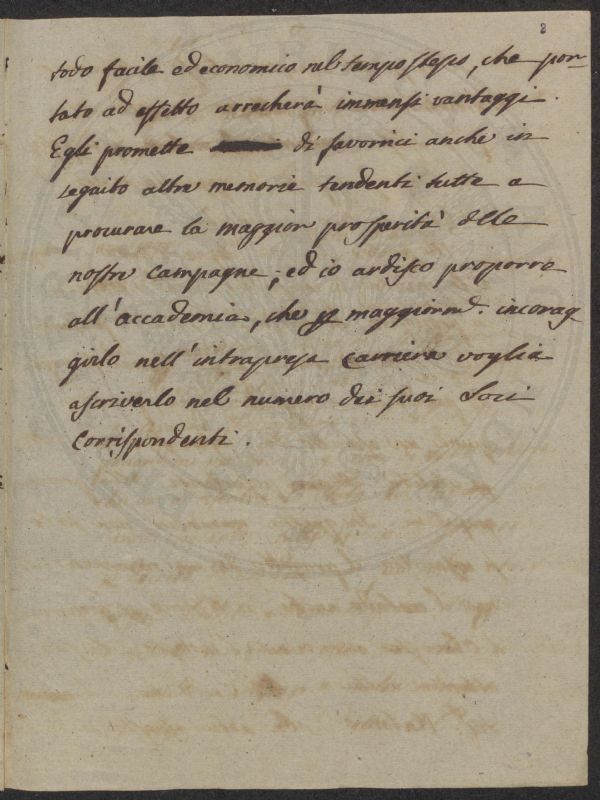 8
todo facile ed economico nel tempo stesso, che por-
tato ad effetto arrecherà immensi vantaggi.
Egli promette di favorirci anche in
seguito altre memorie tendenti tutte a
procurare la maggior prosperità delle
nostre campagne; ed io ardisco proporre
all'accademia, che p maggiormẽ. incorag
girlo nell'intrapresa carriera voglia
ascriverlo nel numero dei suoi Soci
Corrispondenti.